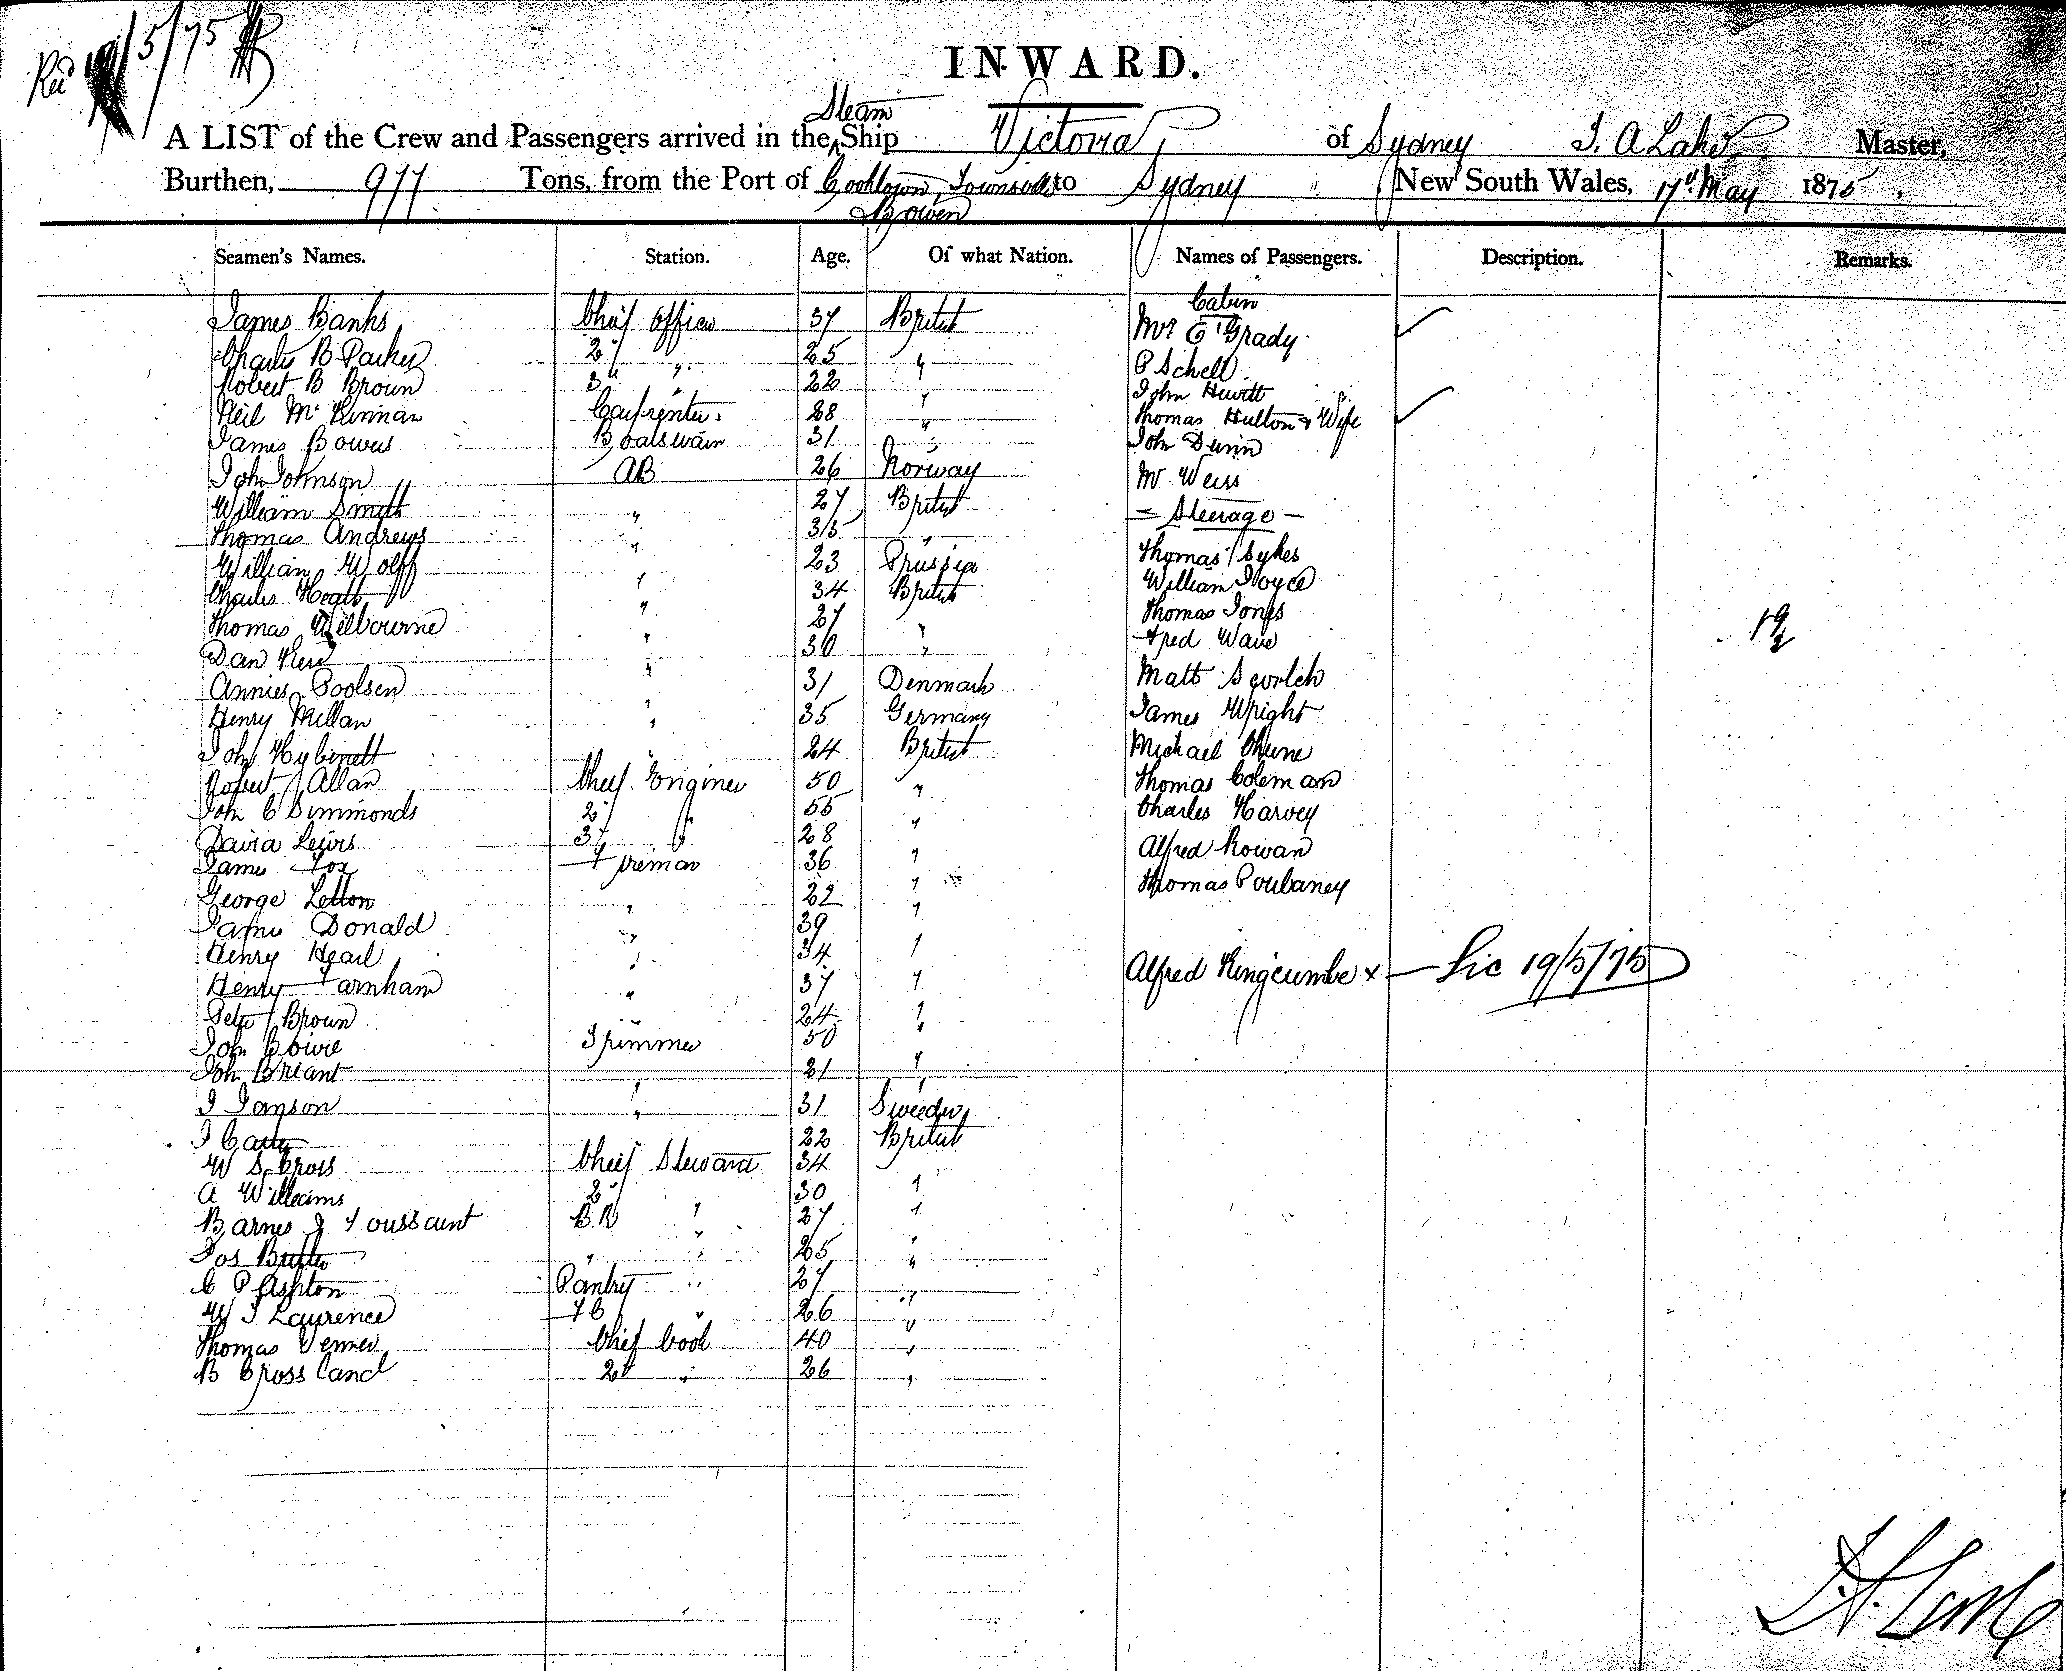 19/5/75
INWARD.
A LIST of the Crew and Passengers arrived in the Steam Ship Victoria of Sydney Master,
Burthen, 977 Tons, from the Port of Cooktown Townsville to Sydney New South Wales, 17th May 1875.
Bowen
Seamen's Names. Station. Age. Of what Nation. Names of Passengers. Description. Remarks.
Cabin
James Banks Chief Officer 37 British Grady
Charles B Parker 2d " 25 " P Schell
Robert B Brown 3d " 22 " John Hewitt
Neil McKinnan Carpenter 28 " Thomas Hulton & Wife
James Bowers Boatswain 31 " John Dunn
John Johnson AB 26 Norway Mr Weiss
William Smith " 27 British — Steerage —
Thomas Andrews " 33 "
William Wolff " 23 Prussia Thomas Sykes
Charles Heath " 34 British William Joyce
Thomas Wilbourne " 27 " Thomas Jones
19
Dan " 30 " Fred
Annies Poolsen " 31 Denmark Matt
Henry Millan " 35 Germany James Wright
John " 24 British Michael
Robert Allan Chief Engineer 50 " Thomas Coleman
John C Simmonds 2d " 55 " Charles Harvey
David Lewis 3d " 28 " Alfred Rowan
James Fox Fireman 36 " Thomas
George Letton " 22 "
James Donald " 39 "
Henry " 34 " Alfred Kingcumbe x — Lic 19/5/75
Henry Farnham " 37 "
Peter Brown " 24 "
John Bowie Trimmer 50 "
John Briant " 21 "
J Janson " 31 Sweden
J 22 British
W S Cross Chief Steward 34 "
A Williams 2d " 30 "
Barnes J Toussaint B.R " 27 "
Jos Butler " " 25 "
C P Ashton Pantry " 27 "
W J Laurence F C " 26 "
Thomas Venner Chief Cook 40 "
B Crossland 2d " 26 "